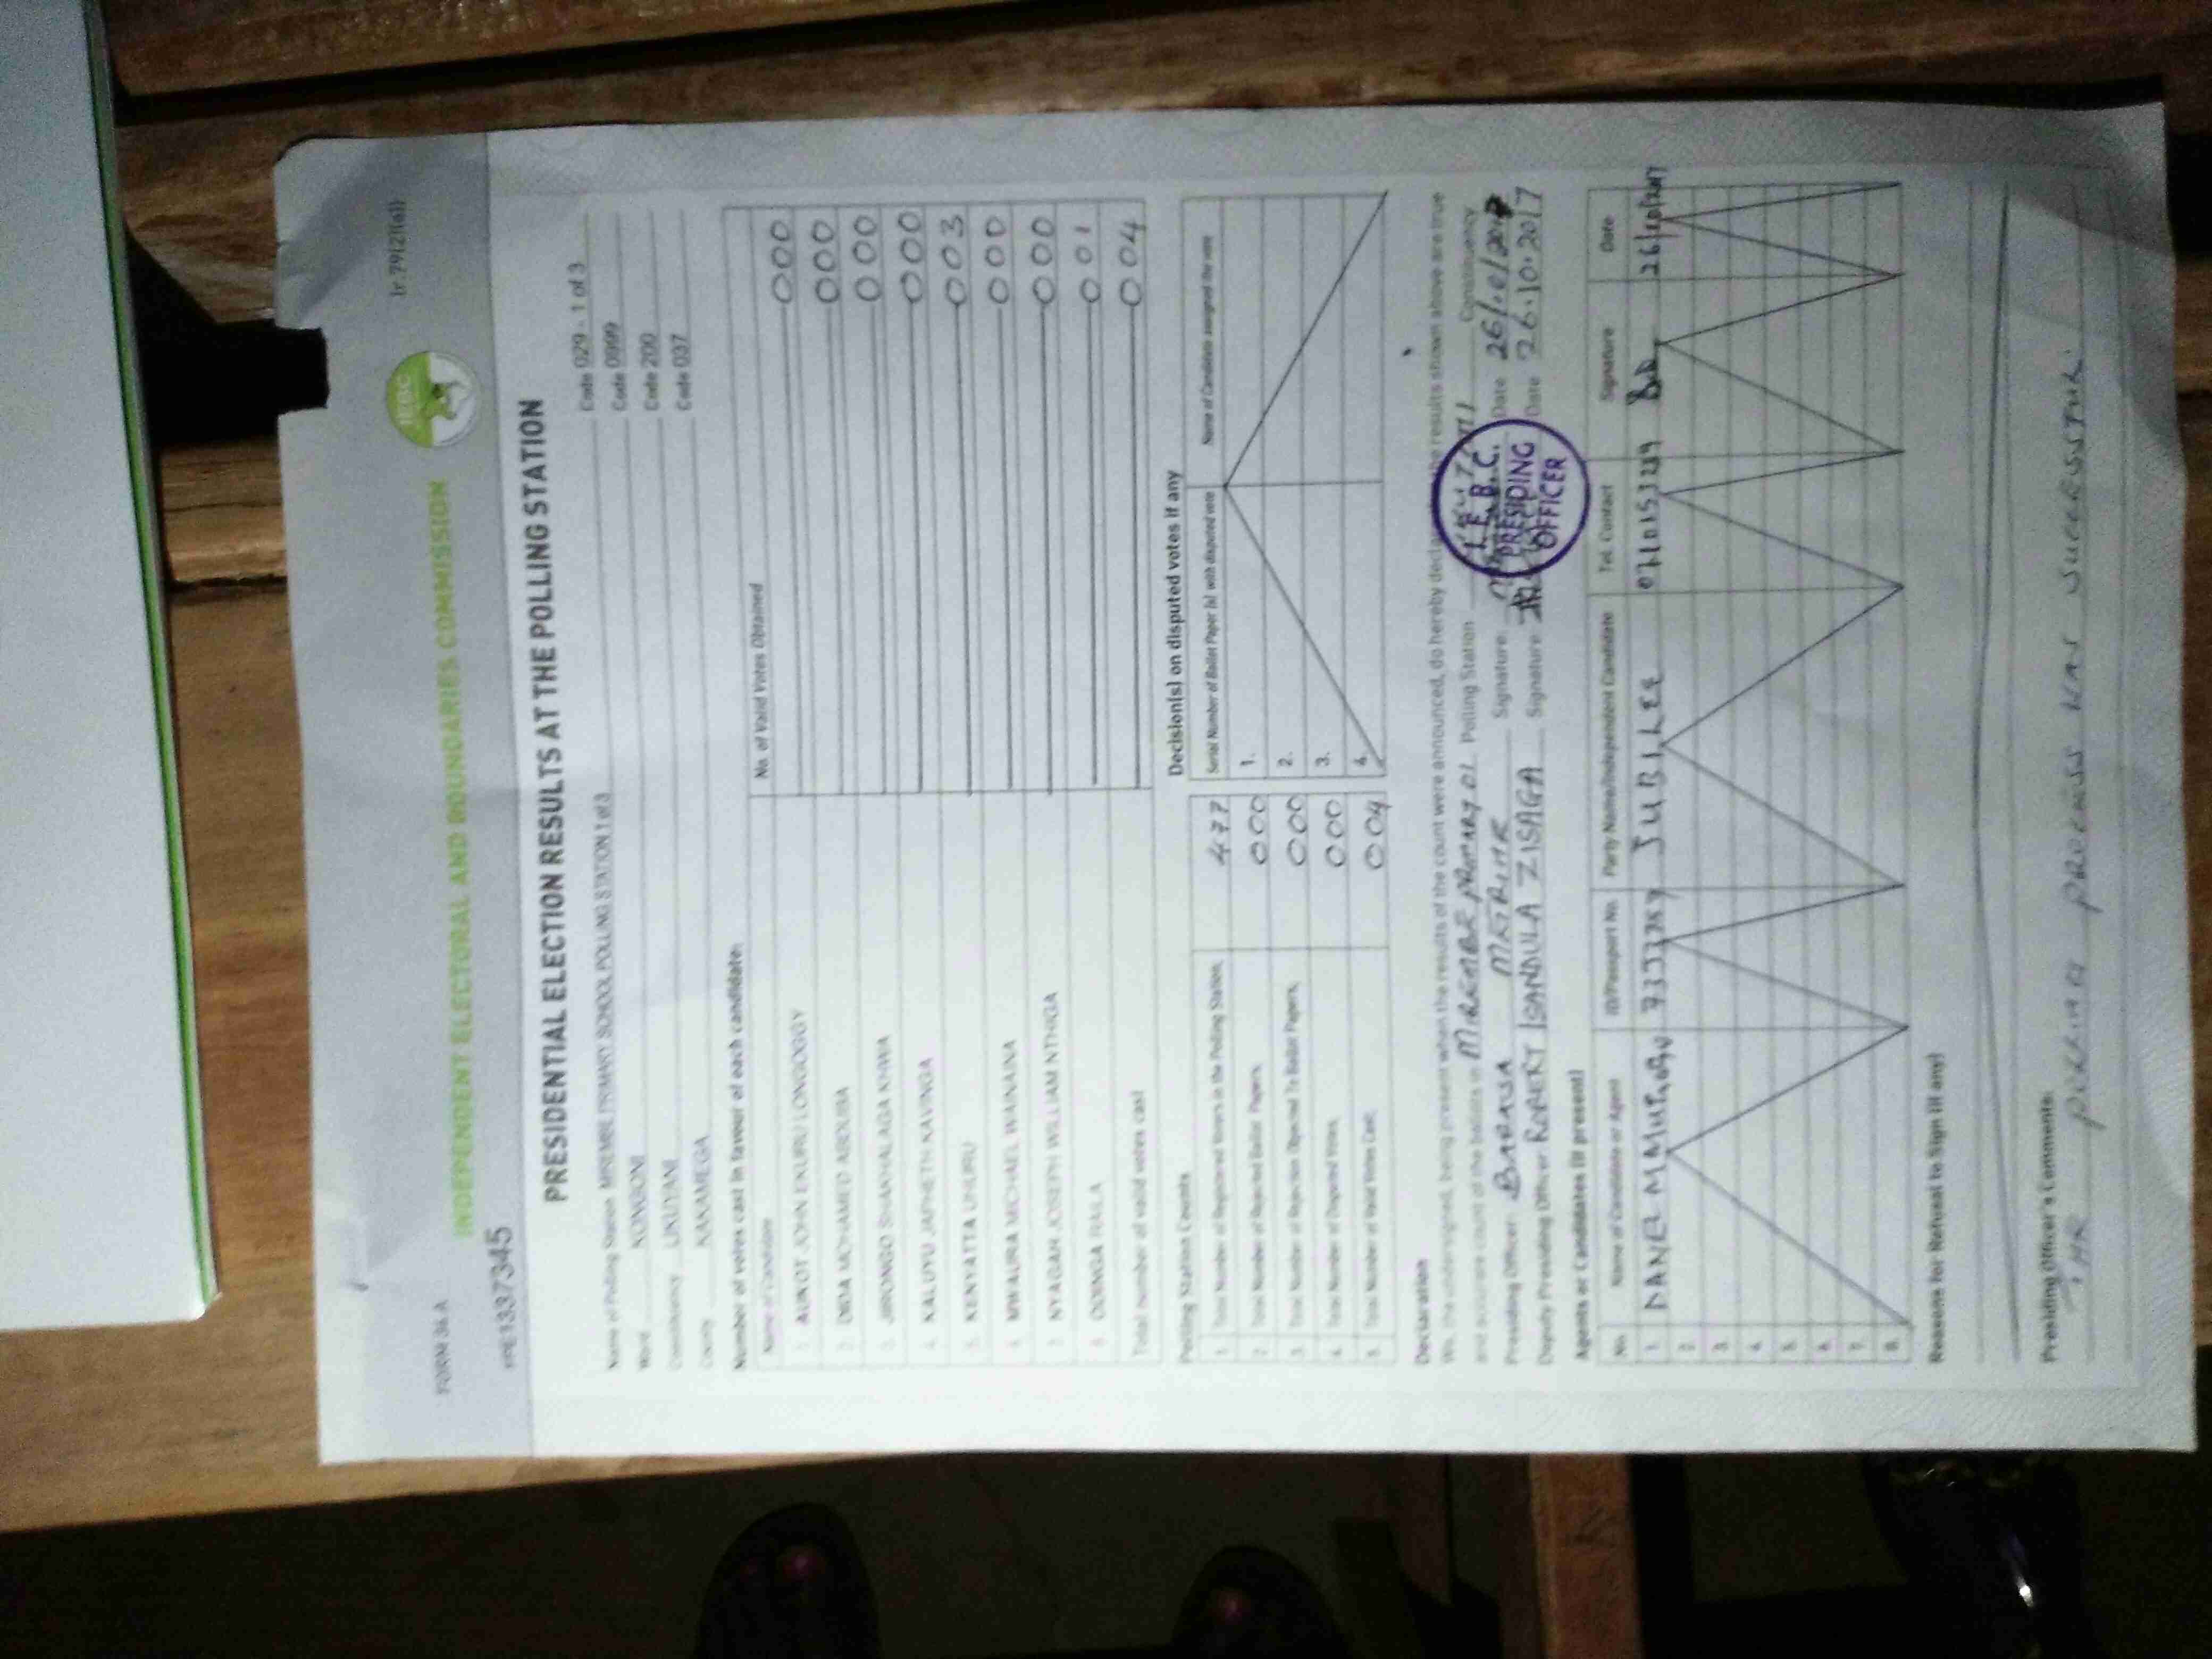 FORM 34 A
(r 79(2)(a))
INDEPENDENT ELECTORAL AND BOUNDARIES COMMISSION
IEBC
PRE1337345
PRESIDENTIAL ELECTION RESULTS AT THE POLLING STATION
Name of Polling Station MIREMBE PRIMARY SCHOOL POLLING STATION 1 of 3 Code 029 - 1 of 3
Ward KONGONI Code 0999
Constituency LIKUYANI Code 200
County KAKAMEGA Code 037
Number of votes cast in favour of each candidate:
Name of Candidate No. of Valid Votes Obtained
1 AUKOT JOHN EKURU LONGOGGY 000
2 DIDA MOHAMED ABDUBA 000
3. JIRONGO SHAKHALAGA KHWA 000
4. KALUYU JAPHETH KAVINGA 000
5. KENYATTA UHURU 003
6 MWAURA MICHAEL WAINAINA 000
7 NYAGAH JOSEPH WILLIAM NTHIGA 000
8 ODINGA RAILA 001
Total number of valid votes cast 004
Polling Station Counts
1. Total Number of Registered Voters in the Polling Station. 477
2. Total Number of Rejected Ballot Papers. 000
3. Total Number of Rejection Objected To Ballot Papers. 000
4. Total Number of Disputed Votes. 000
5. Total Number of Valid Votes Cast. 004
Decision(s) on disputed votes if any
Serial Number of Ballot Paper (s) with disputed vote Name of Candidate assigned the vote
1.
2.
3.
4.
Declaration
We, the undersigned, being present when the results of the count were announced, do hereby declare the results shown above are true
and accurate count of the ballots in MIREMBE PRIMARY 01 Polling Station Constituency
Presiding Officer: BARASA Signature Date
Deputy Presiding Officer ROBERT ISANDULA ZISAGA Signature Date 26.10.2017
I.E.B.C. PRESIDING OFFICER
Agents or Candidates (if present)
No. Name of Candidate or Agent ID/Passport No. Party Name/Independent Candidate Tel. Contact Signature Date
1. JUBILEE 26/10/2017
2.
3.
4.
5.
6.
7.
8.
Reasons for Refusal to Sign (if any)
Presiding Officer's Comments:
THE POLLING PROCESS WAS SUCCESSFUL